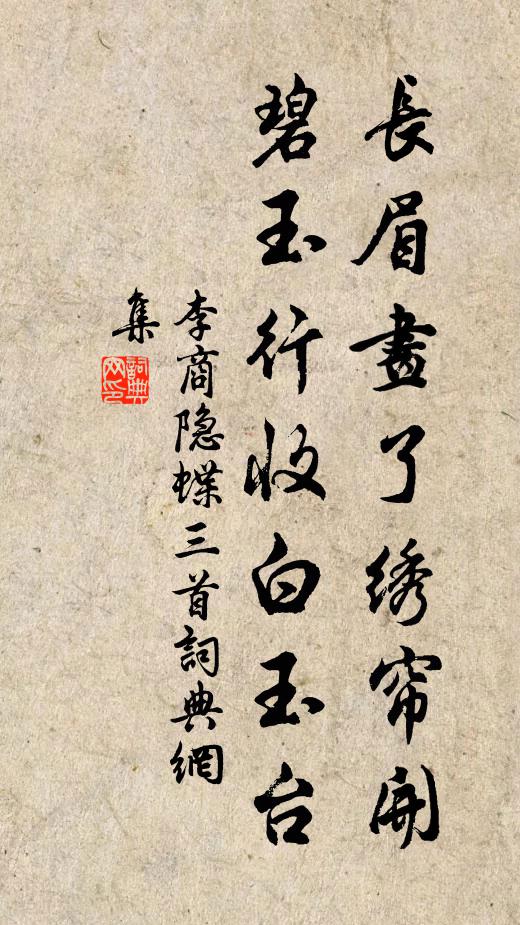 長眉畫了綉帘開
碧玉行收白玉台
李商隐蝶三首詞典網
集
詞典
网印